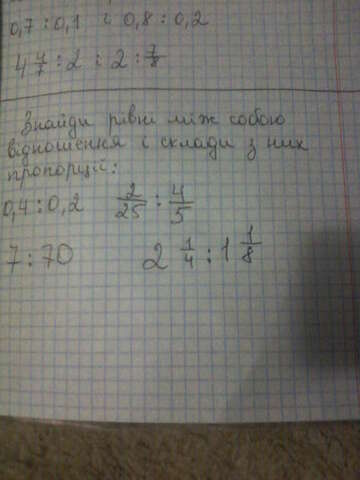 0,7 : 0,1 і 0,8 : 0,2
4 4/7 : 2 і 2 : 7/8
Знайди рівні між собою
відношення і склади з них
пропорції:
0,4 : 0,2 2/25 : 4/5
7 : 70 2 1/4 : 1 1/8